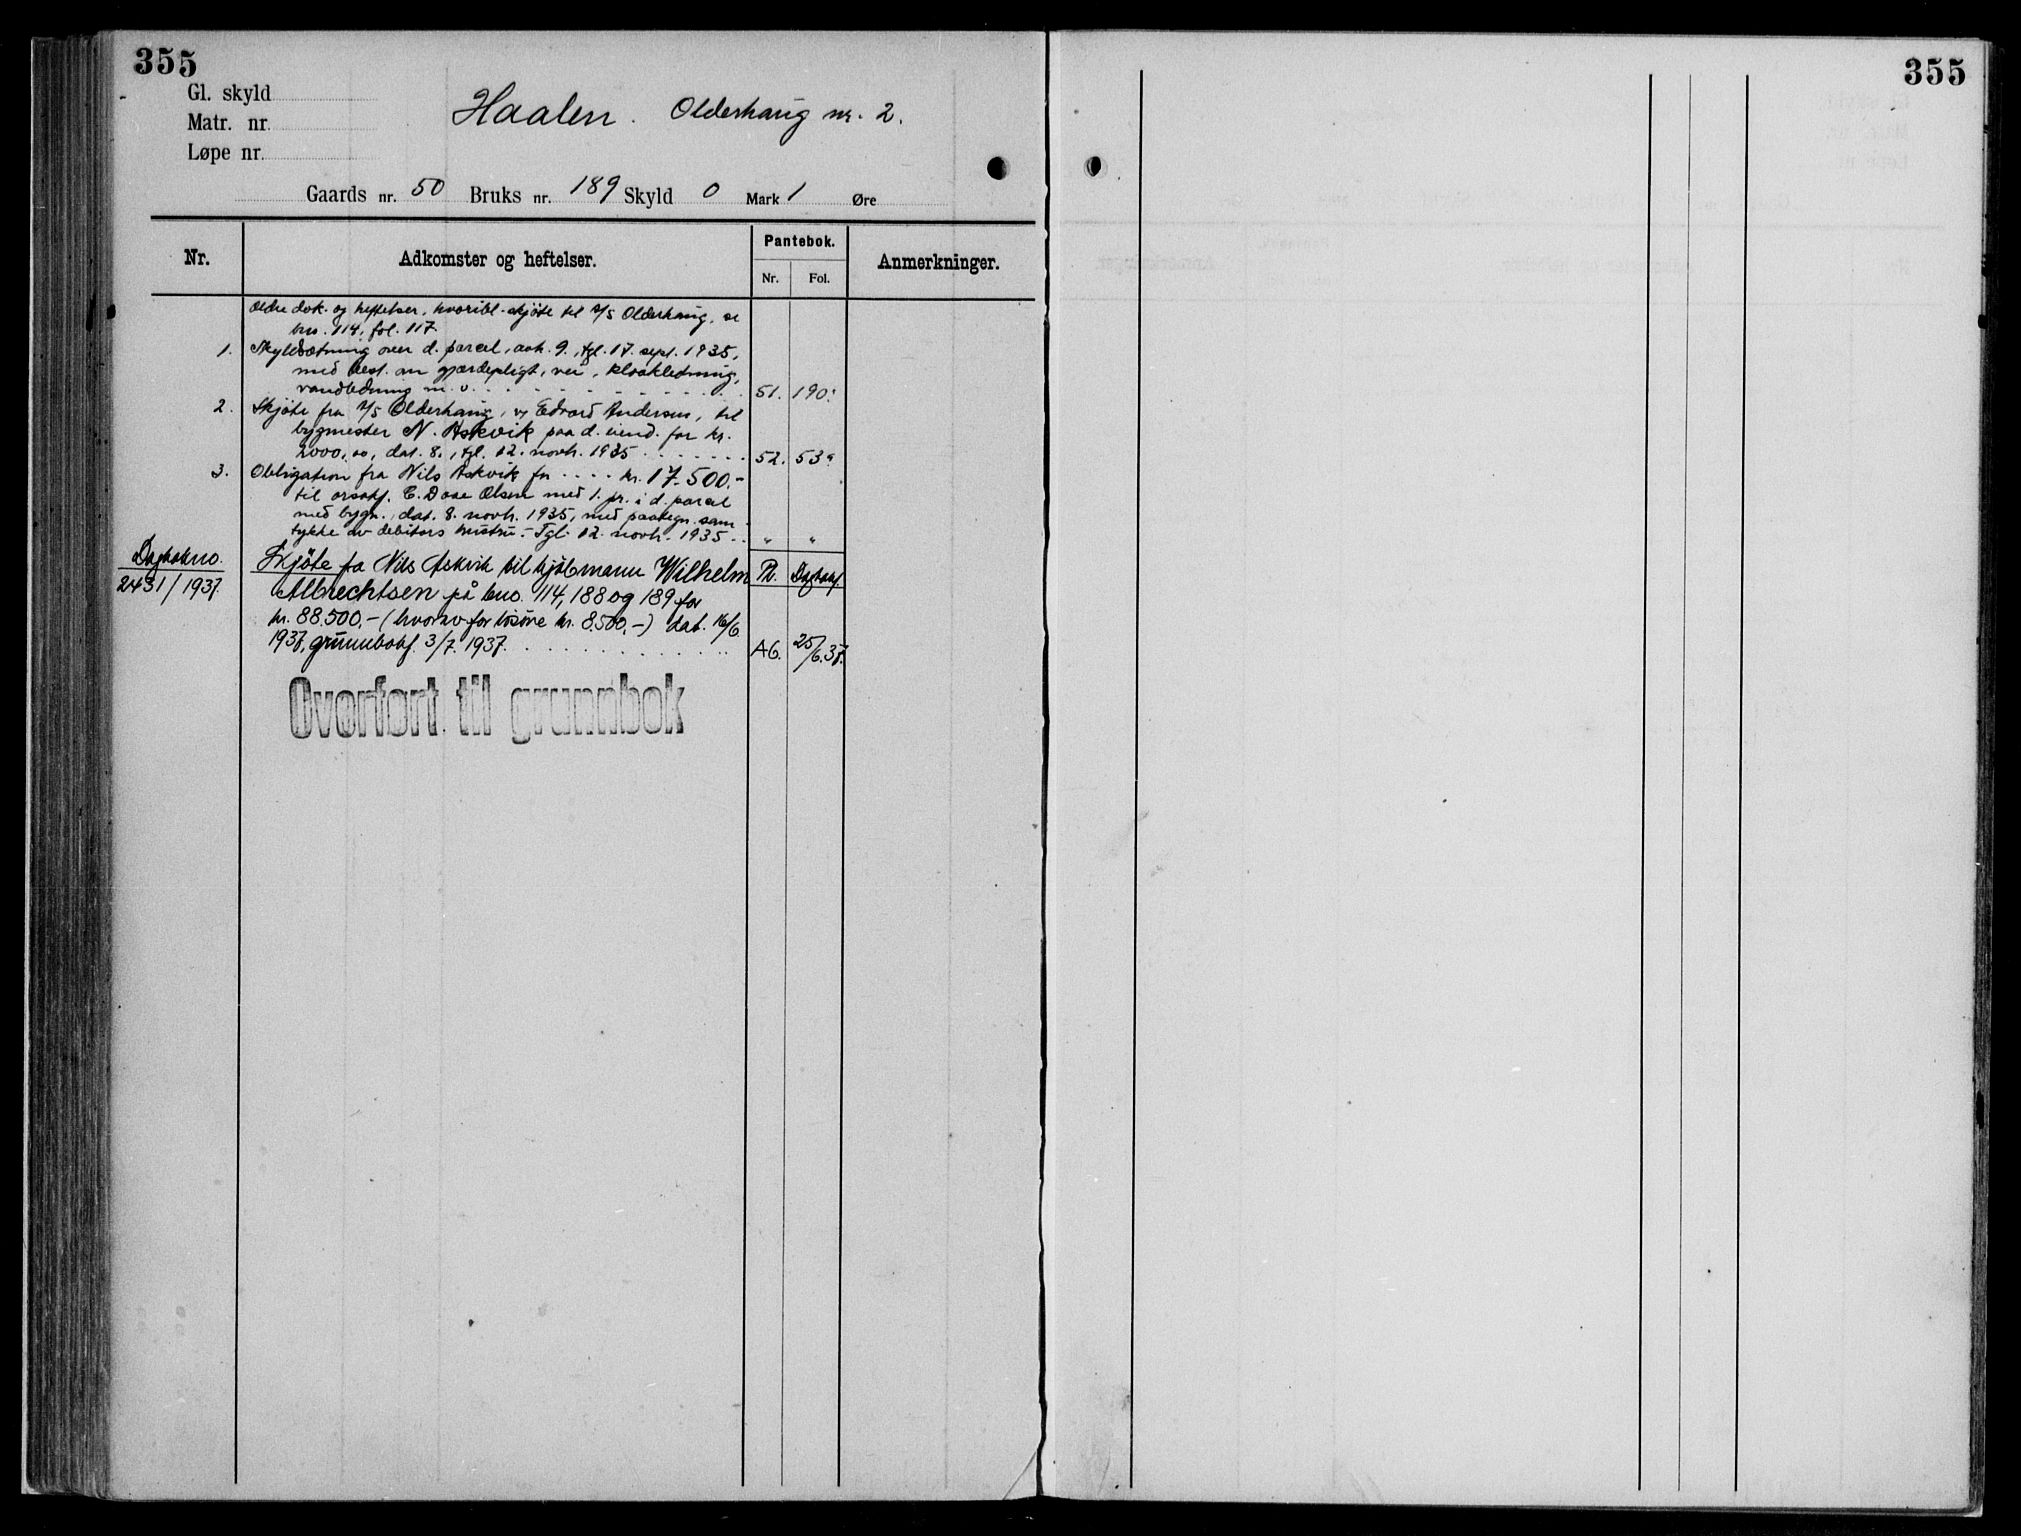 355
355
Gl. skyld
Matr. nr.
Løpe nr.
Haalen. Olderhaug nr. 2.
Gaards nr. 50 Bruks nr. 189 Skyld 0 Mark 1 Øre
Nr. Adkomster og heftelser. Pantebok. Anmerkninger.
Nr. Fol.
Ældre dok. og heftelser, hvoribl. skjøte til A/S Olderhaug, se
bno. 114, fol. 117.
1. Skyldsætning over d. parcel, avh. 9., tgl. 17. sept. 1935,
med best. om gjærdepligt, vei, kloakledning,
vandledning m. v. 51. 190.
2. Skjøte fra A/S Olderhaug, v/ Edvard Andersen, til
bygmester N. Askvik paa d. eiend. for kr.
2000,00, dat. 8., tgl. 12. novb. 1935 52. 53.
3. Obligation fra Nils Askvik for kr. 17.500.-
til orsakf. C. Doae Olsen med 1. pr. i d. parcel
med bygn., dat. 8. novb. 1935, med paategn. sam-
tykke av debitors hustru. - Tgl. 12. novb. 1935 " "
Dagbokno. Skjøte fra Nils Askvik til kjøbmann Wilhelm Pb. Dagbokf.
2431/1937. Albrechtsen på bno. 114, 188 og 189 for
kr. 88.500,- (hvorav for løsøre kr. 8.500,-) dat. 16/6
1937, grunnbokf. 3/7. 1937. A6. 25/6.37.
Overført til grunnbok